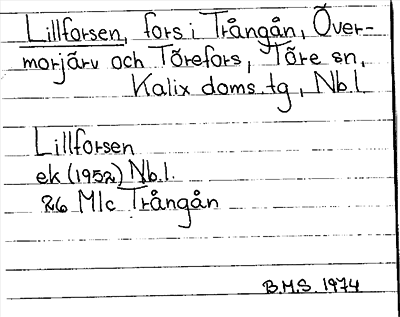 Lillforsen, fors i Trångån, Över-
morjärv och Törefors, Töre sn,
Kalix doms.tg, Nb.l.
Lillforsen
ek (1952) Nb.l.
26 Mlc Trångån
B.M.S. 1974